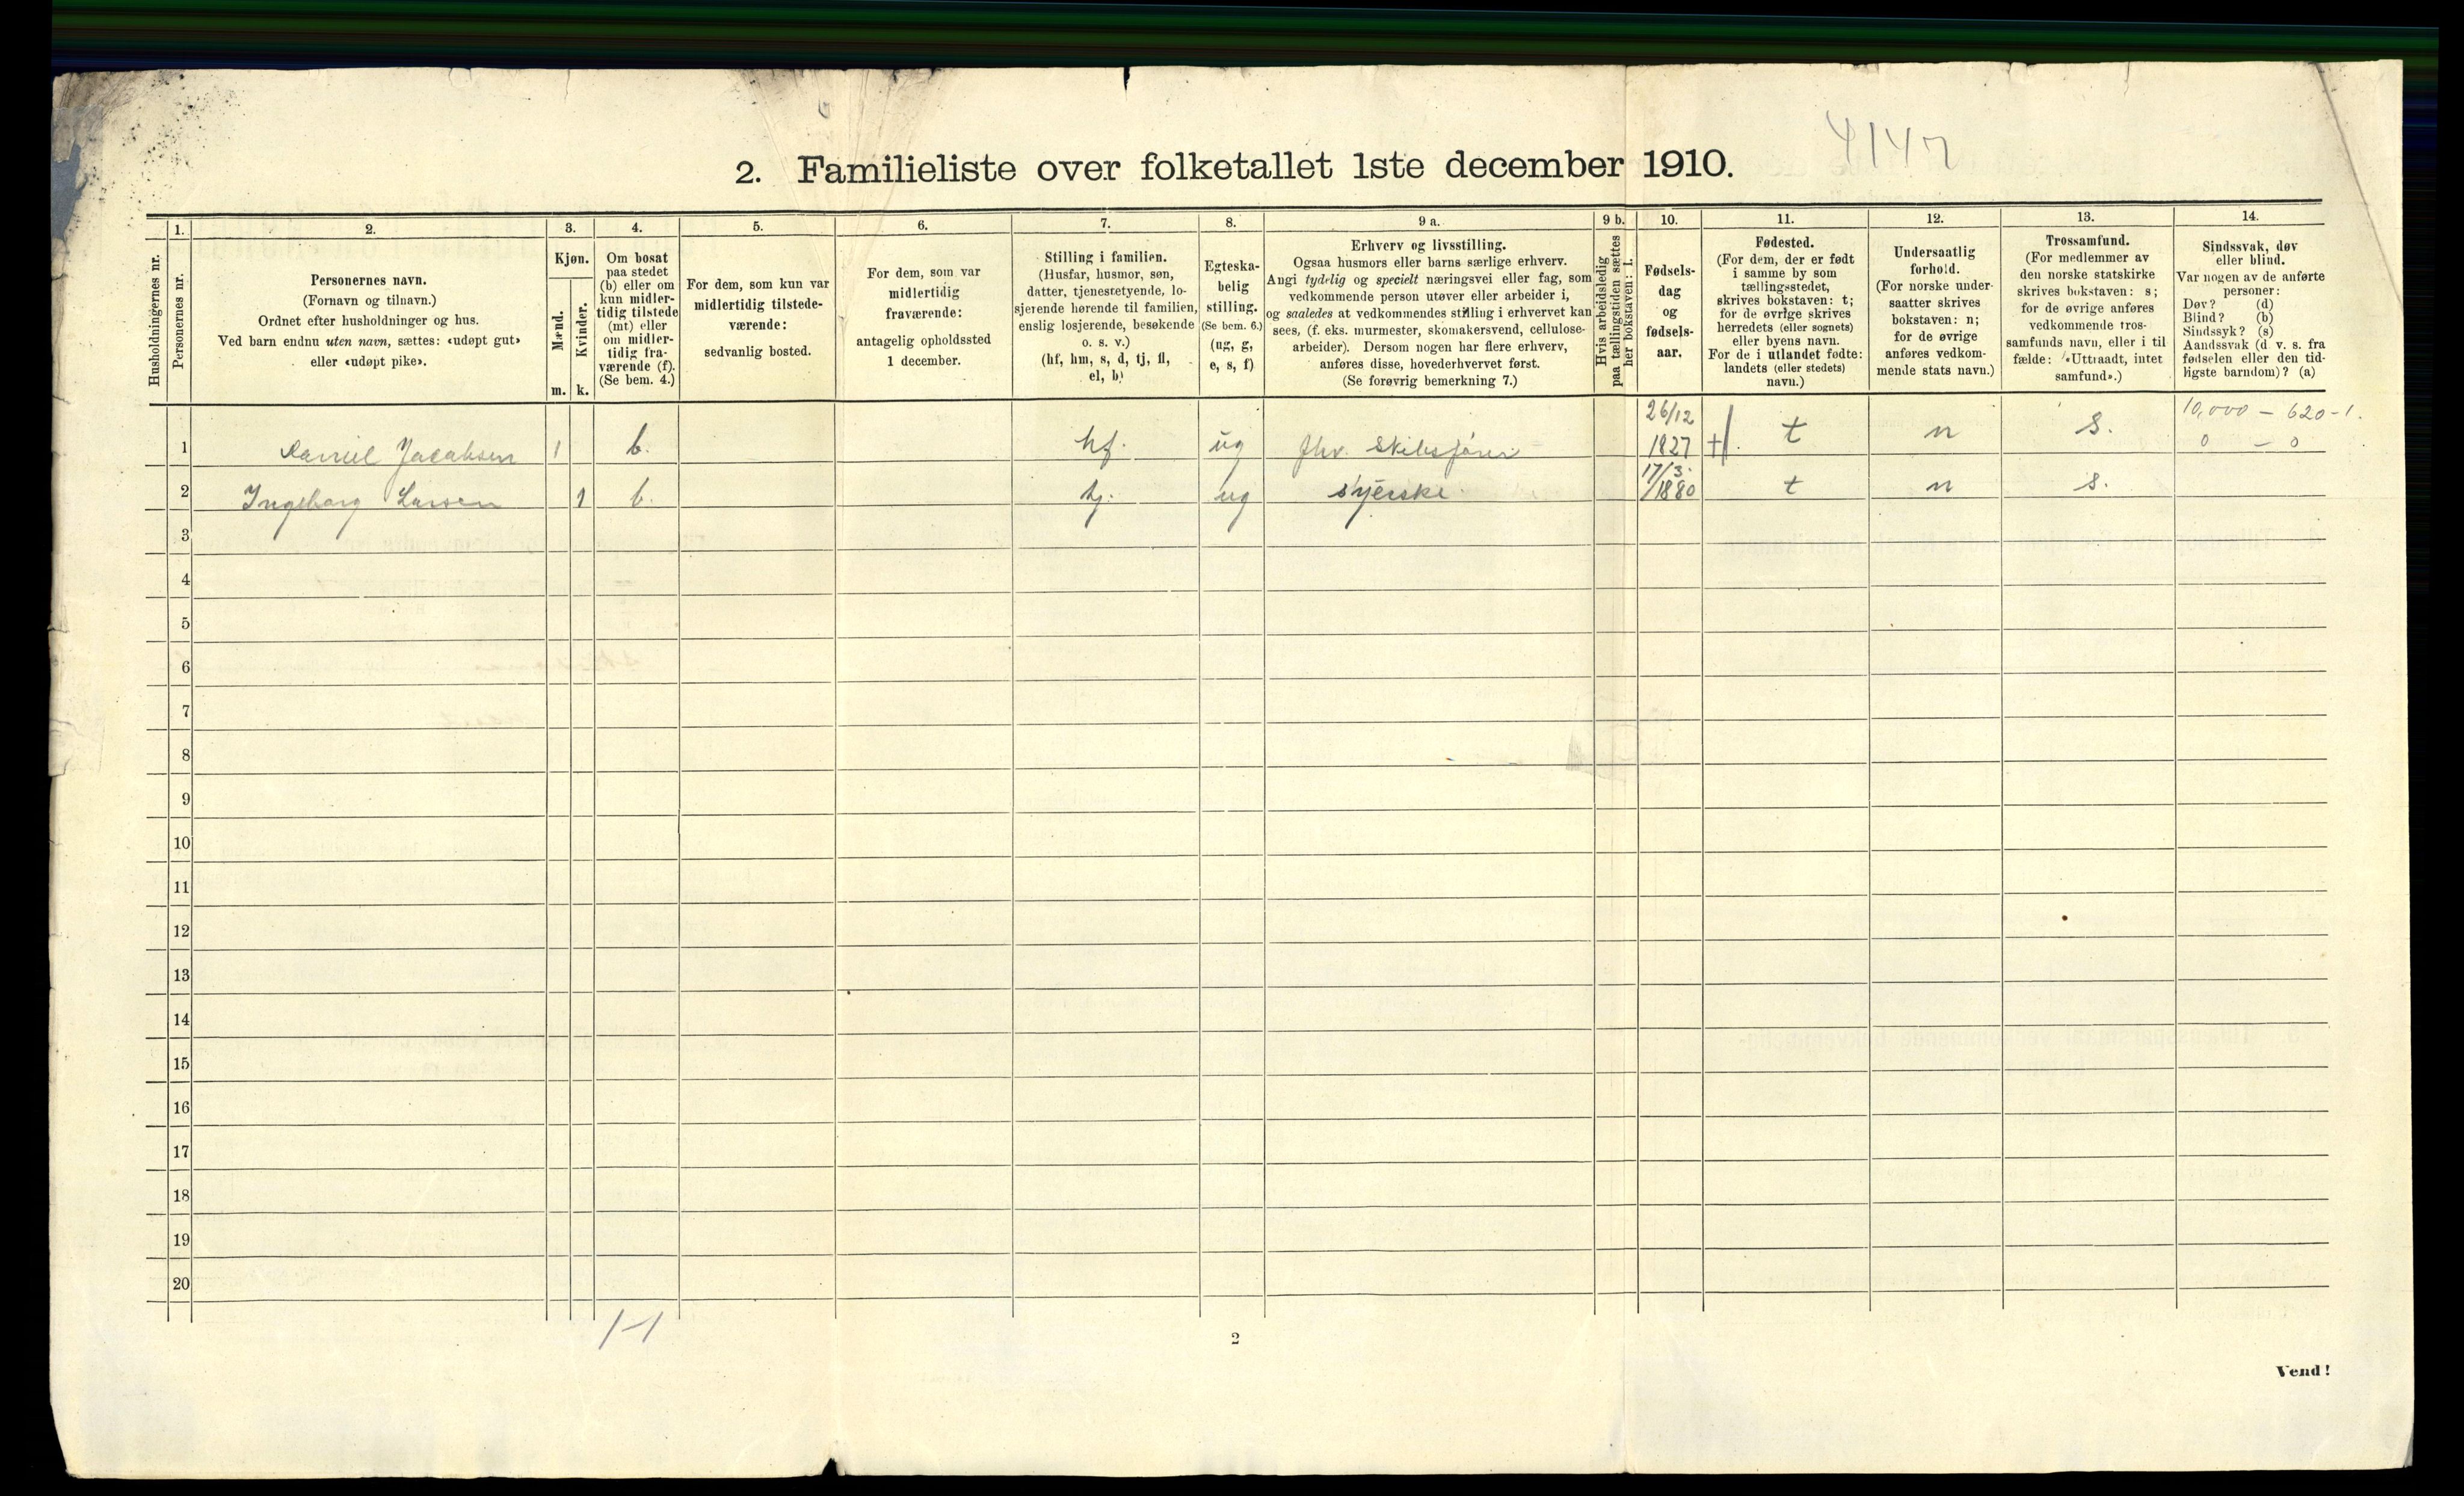 4147
2. Familieliste over folketallet 1ste december 1910.
Husholdningernes nr.
1.
Personernes nr.
2.
Personernes navn.
(Fornavn og tilnavn.)
Ordnet efter husholdninger og hus.
Ved barn endnu uten navn, sættes: «udøpt gut»
eller «udøpt pike».
3.
Kjøn.
Mænd.
Kvinder.
m. k.
4.
Om bosat
paa stedet
(b) eller om
kun midler-
tidig tilstede
(mt) eller
om midler-
tidig fra-
værende (f).
(Se bem. 4.)
5.
For dem, som kun var
midlertidig tilstede-
værende:
sedvanlig bosted.
6.
For dem, som var
midlertidig
fraværende:
antagelig opholdssted
1 december.
7.
Stilling i familien.
(Husfar, husmor, søn,
datter, tjenestetyende, lo-
sjerende hørende til familien,
enslig losjerende, besøkende
o. s. v.)
(hf, hm, s, d, tj, fl,
el, b)
8.
Egteska-
belig
stilling.
(Se bem. 6.)
(ug, g,
e, s, f)
9 a.
Erhverv og livsstilling.
Ogsaa husmors eller barns særlige erhverv.
Angi tydelig og specielt næringsvei eller fag, som
vedkommende person utøver eller arbeider i,
og saaledes at vedkommendes stilling i erhvervet kan
sees, (f. eks. murmester, skomakersvend, cellulose-
arbeider). Dersom nogen har flere erhverv,
anføres disse, hovederhvervet først.
(Se forøvrig bemerkning 7.)
9 b.
Hvis arbeidsledig
paa tællingstiden sættes
her bokstaven: l.
10.
Fødsels-
dag
og
fødsels-
aar.
11.
Fødested.
(For dem, der er født
i samme by som
tællingsstedet,
skrives bokstaven: t;
for de øvrige skrives
herredets (eller sognets)
eller byens navn.
For de i utlandet fødte:
landets (eller stedets)
navn.)
12.
Undersaatlig
forhold.
(For norske under-
saatter skrives
bokstaven: n;
for de øvrige
anføres vedkom-
mende stats navn.)
13.
Trossamfund.
(For medlemmer av
den norske statskirke
skrives bokstaven: s;
for de øvrige anføres
vedkommende tros-
samfunds navn, eller i til
fælde: «Uttraadt, intet
samfund».)
14.
Sindssvak, døv
eller blind.
Var nogen av de anførte
personer:
Døv? (d)
Blind? (b)
Sindssyk? (s)
Aandssvak (d v. s. fra
fødselen eller den tid-
ligste barndom)? (a)
1 Daniel Jacobsen 1 b. hf. ug fhv. Skibsfører 26/12 1827 + t n s. 10,000 - 620-1.
0 - 0
2 Ingeborg Larsen 1 b. tj. ug syerske 17/3 1880 t n s.
3
4
5
6
7
8
9
10
11
12
13
14
15
16
17
18
19
20
1-1
2
Vend!